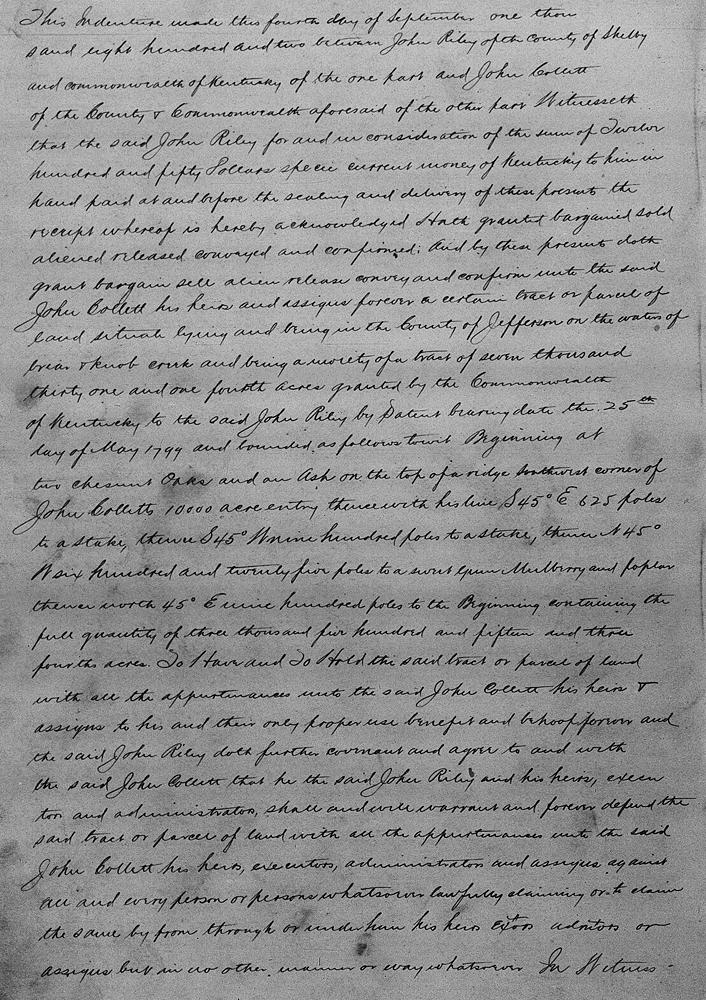 This Indenture made this fourth day of September one thou
sand eight hundred and two between John Riley of the County of Shelby
and commonwealth of Kentucky of the one part and John Collett
of the County & Commonwealth aforesaid of the other part Witnesseth
that the said John Riley for and in consideration of the sum of Twelve
hundred and fifty Dollars specie current money of Kentucky to him in
hand paid at and before the sealing and delivery of these presents the
receipt whereof is hereby acknowledged Hath granted bargained sold
aliened released conveyed and confirmed; And by these presents doth
grant bargain sell alien release convey and confirm unto the said
John Collett his heirs and assigns forever a certain tract or parcel of
land situate lying and being in the County of Jefferson on the waters of
briar & knob creek and being a moiety of a tract of seven thousand
thirty one and one fourth acres granted by the Commonwealth
of Kentucky to the said John Riley by Patent bearing date the 25th
day of May 1799 and bounded as follows towit Beginning at
two chesnut Oaks and an Ash on the top of a ridge southwest corner of
John Colletts 10000 acre entry thence with his line S45° E 625 poles
to a stake, thence S45° W nine hundred poles to a stake, thence N45°
W six hundred and twenty five poles to a sweet gum Mulberry and poplar
thence north 45° E nine hundred poles to the Beginning containing the
full quantity of three thousand five hundred and fifteen and three
fourths acres. To Have and To Hold the said tract or parcel of land
with all the appurtenances unto the said John Collett his heirs &
assigns to his and their only proper use benefit and behoof forever and
the said John Riley doth further covenant and agree to and with
the said John Collett that he the said John Riley and his heirs, execu
tors and administrators, shall and will warrant and forever defend the
said tract or parcel of land with all the appurtenances unto the said
John Collett his heirs, executors, administrators and assigns against
all and every person or persons whatsoever lawfully claiming or to claim
the same by from through or under him his heirs Extors admtors or
assigns but in no other manner or way whatsoever In Witness